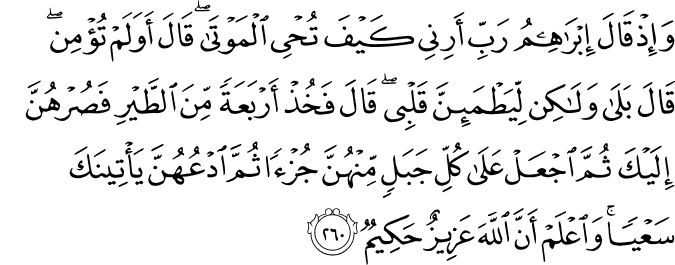 وَإِذْ قَالَ إِبْرَٰهِـۧمُ رَبِّ أَرِنِى كَيْفَ تُحْىِ ٱلْمَوْتَىٰ ۖ قَالَ أَوَلَمْ تُؤْمِن ۖ
قَالَ بَلَىٰ وَلَـٰكِن لِّيَطْمَئِنَّ قَلْبِى ۖ قَالَ فَخُذْ أَرْبَعَةً مِّنَ ٱلطَّيْرِ فَصُرْهُنَّ
إِلَيْكَ ثُمَّ ٱجْعَلْ عَلَىٰ كُلِّ جَبَلٍ مِّنْهُنَّ جُزْءًا ثُمَّ ٱدْعُهُنَّ يَأْتِينَكَ
سَعْيًا ۚ وَٱعْلَمْ أَنَّ ٱللَّهَ عَزِيزٌ حَكِيمٌ ٢٦٠